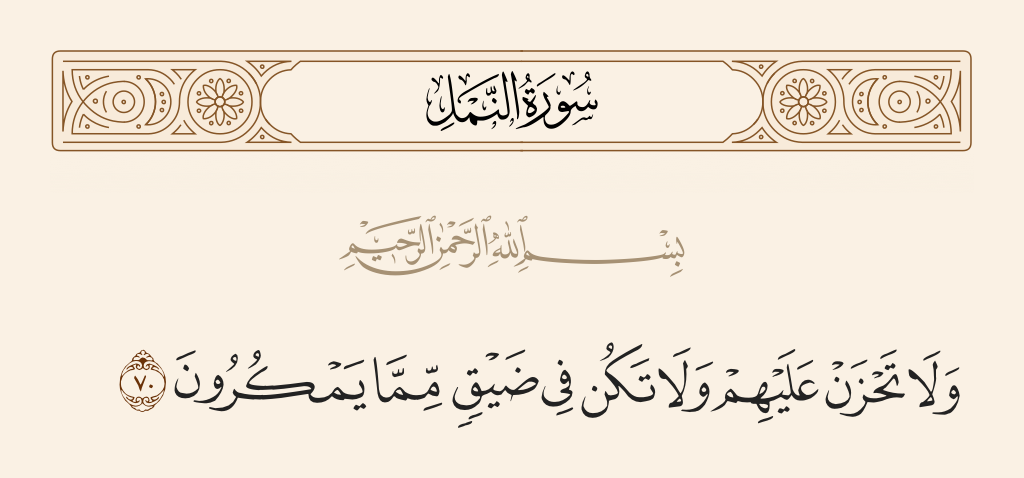 سُورَةُ النَّمْلِ
بِسْمِ ٱللَّهِ ٱلرَّحْمَٰنِ ٱلرَّحِيمِ
وَلَا تَحْزَنْ عَلَيْهِمْ وَلَا تَكُن فِي ضَيْقٍ مِّمَّا يَمْكُرُونَ ٧٠